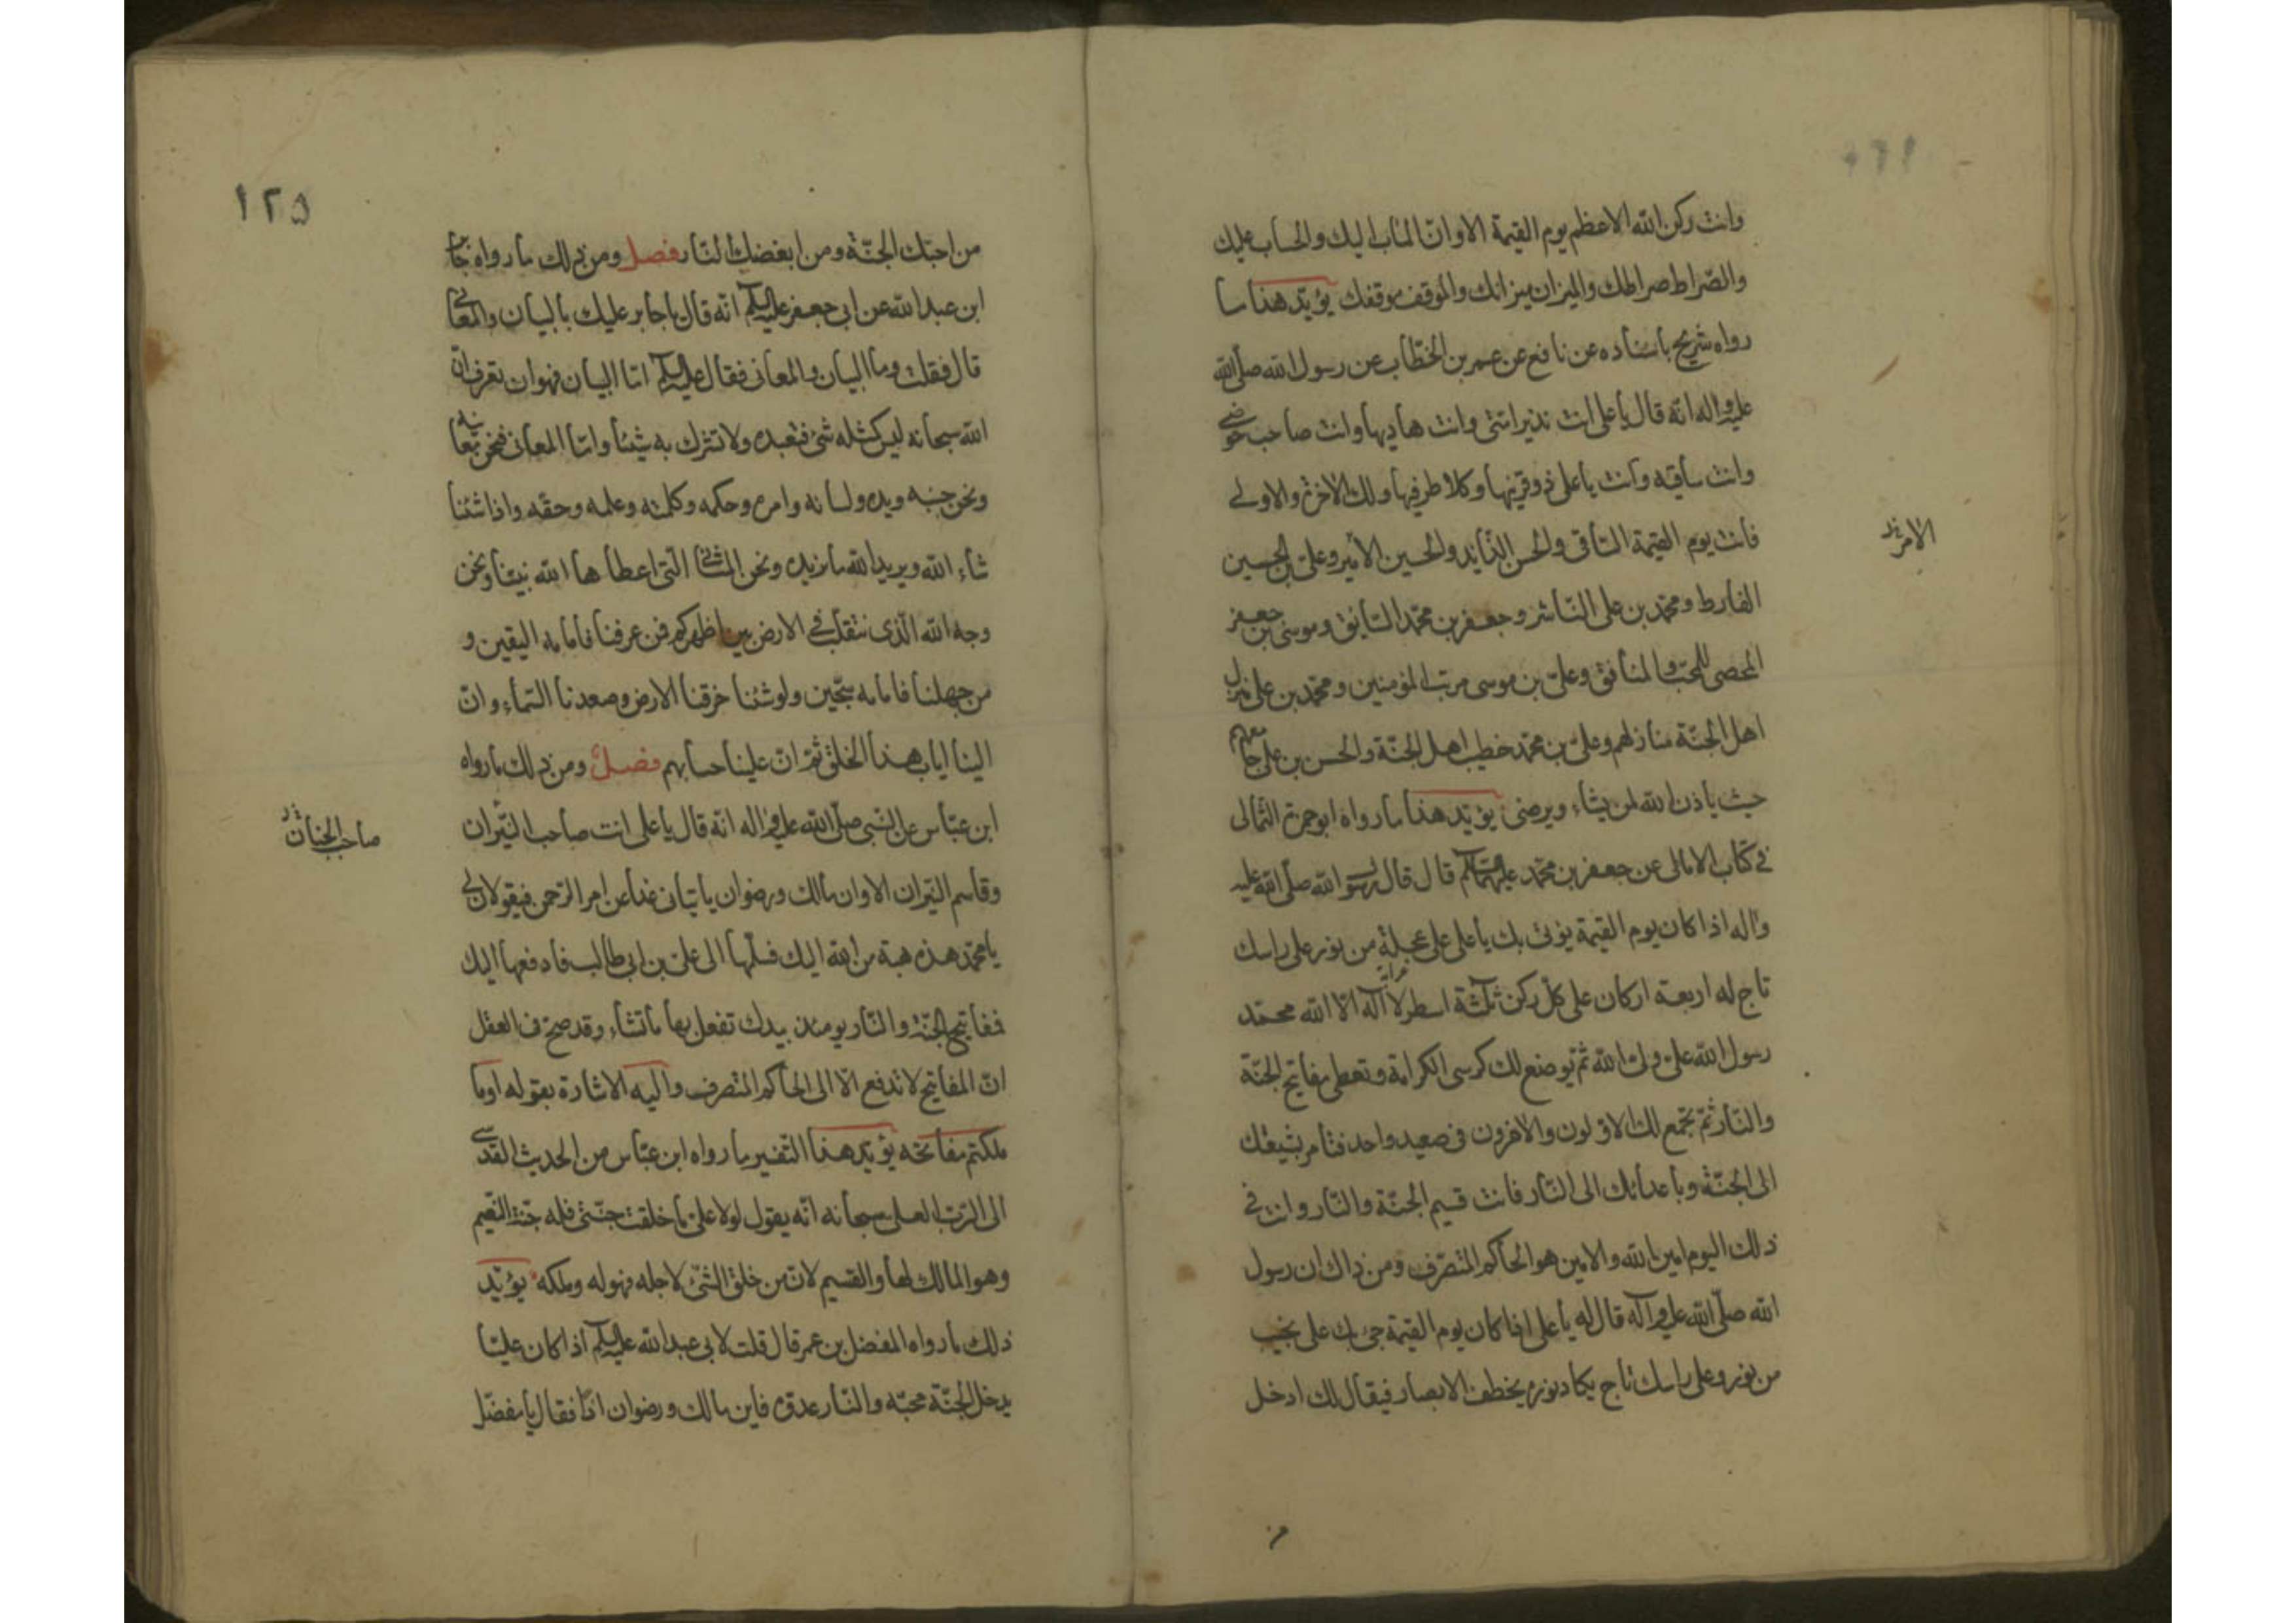 وانت ركن الله الاعظم يوم القيمة الا وان المآب اليك والحساب عليك
والصّراط صراطك والميزان ميزانك والموقف موقفك يؤيّد هذا ما
رواه شريح باسناده عن نافع عن عمر بن الخطّاب عن رسول الله صلّى الله
عليه واله انه قال يا على انت نذير امتى وانت هاديها وانت صاحب حوضى
وانت ساقيه وانت يا على ذو قرنيها وكلا طرفيها ولك الاخرة والاولى
فانت يوم القيمة السّاقى والحسن الذّايد والحسين الأمير وعلى بن الحسين
الفارط ومحمّد بن على النّاشر وجعفر بن محمّد السّايق وموسى بن جعفر
المحصى للمحبّ والمنافق وعلىّ بن موسى مرتب المؤمنين ومحمّد بن على منزل
اهل الجنّة منازلهم وعلىّ بن محمّد خطيب اهل الجنّة والحسن بن على جامعهم
حيث ياذن الله لمن يشاء ويرضى يؤيّد هذا ما رواه ابو حمزة الثمالى
فى كتاب الامالى عن جعفر بن محمّد عليهما السلام قال قال رسول الله صلّى الله عليه
واله اذا كان يوم القيمة يؤتى بك يا على على عجلة من نور على راسك
تاج له اربعة اركان على كلّ ركن ثلثة اسطر لا اله الّا الله محمّد
رسول الله علىّ ولى الله ثم يوضع لك كرسى الكرامة وتعطى مفاتيح الجنّة
والنّار ثمّ يجمع لك الاوّلون والاخرون فى صعيد واحد فتامر بشيعتك
الى الجنّة وباعدائك الى النّار فانت قسيم الجنّة والنّار وانت فى
ذلك اليوم امين الله والامين هو الحاكم المتصرّف ومن ذاك ان رسول
الله صلّى الله عليه وآله قال له يا على اذا كان يوم القيمة جئ بك على نجيب
من نور وعلى راسك تاج يكاد نوره يخطف الابصار فيقال لك ادخل
من
١٢٥
من احبّك الجنّة ومن ابغضك النّار فصل ومن ذلك ما رواه جابر
ابن عبد الله عن ابى جعفر عليه السلام انّه قال يا جابر عليك بالبيان والمعانى
قال فقلت وما البيان والمعانى فقال عليه السلام امّا البيان فهو ان تعرف انّ
الله سبحانه ليس كمثله شئ فتعبده ولا تشرك به شيئا وامّا المعانى فنحن معانيه
ونحن جنبه ويده ولسانه وامره وحكمه وكلمته وعلمه وحقّه واذا شئنا
شاء الله ويريد الله ما نريده ونحن المثانى الّتى اعطاها الله نبيّنا ونحن
وجه الله الّذى نتقلّب فى الارض بين اظهركم فمن عرفنا فامامه اليقين و
من جهلنا فامامه سجّين ولو شئنا خرقنا الارض وصعدنا السّماء وانّ
الينا اياب هذا الخلق ثمّ انّ علينا حسابهم فصل ومن ذلك ما رواه
ابن عبّاس عن النّبى صلّى الله عليه واله انّه قال يا على انت صاحب النّيران
صاحب الجنان
وقاسم النّيران الا وان مالك ورضوان ياتيانى غدا عن امر الرّحمن فيقولان لى
يا محمّد هذه هبة من الله اليك فسلّمها الى علىّ بن ابى طالب فادفعها اليك
فمفاتيح الجنّة والنّار يومئذ بيدك تفعل بها ما تشاء وقد صحّ فى العقل
انّ المفاتيح لا تدفع الّا الى الحاكم المتصرف واليه الاشارة بقوله او ما
ملكتم مفاتحه يؤيّد هذا التّفسير ما رواه ابن عبّاس من الحديث القدسى
الى الرّبّ العلى سبحانه انّه يقول لولا علىّ ما خلقت جنّتى فله جنّة النّعيم
وهو المالك لها والقسيم لانّ من خلق الشّئ لاجله فهو له وملكه يؤيّد
ذلك ما رواه المفضل بن عمر قال قلت لابى عبد الله عليه السلام اذا كان علىّ
يدخل الجنّة محبّه والنّار عدوّه فاين مالك ورضوان اذا فقال يا مفضّل